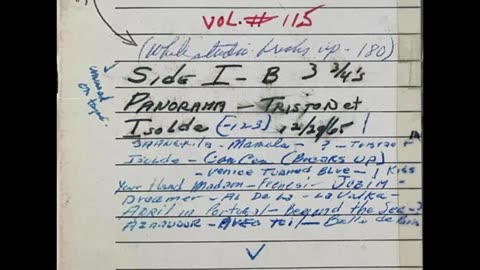 VOL. # 115
(While studio breaks up - 180)
SIDE I - B 3 3/4's
PANORAMA - TRISTONet
ISOLDE (-123) 12/29/65
unwound on tape.
- Mamula - ? - Tristan +
Isolde - Can Can (BREAKS UP)
- VENICE TURNED BLUE - I Kiss
Your Hand Madam - Frenesi - JOBIM -
Dreamer - AL DE LA - LA
April in Portugal - Beyond the Sea - ?
AZNAVOUR - AVEC TOI - Belle de